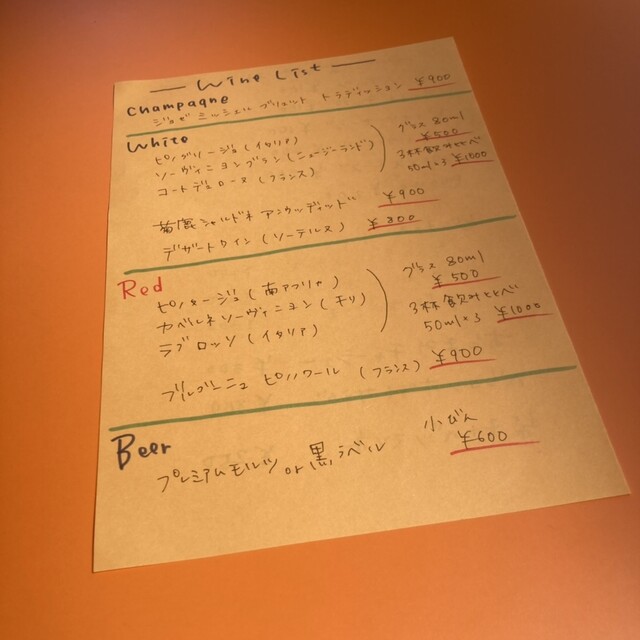 Wine List
Champagne
ジョゼ ミッシェル ブリュット トラディッション ¥900
White
ピノグリージョ(イタリア)
ソーヴィニヨンブラン(ニュージーランド)
コートデュローヌ(フランス)
グラス 80ml
¥500
3杯飲み比べ
50ml×3 ¥1000
菊鹿シャルドネ アンウッディッド ¥900
デザートワイン(ソーテルヌ) ¥800
Red
ピノタージュ(南アフリカ)
カベルネソーヴィニヨン(チリ)
ラブロッソ(イタリア)
グラス 80ml
¥500
3杯飲み比べ
50ml×3 ¥1000
ブルゴーニュ ピノノワール (フランス) ¥900
Beer
プレミアムモルツ or 黒ラベル
小びん
¥600